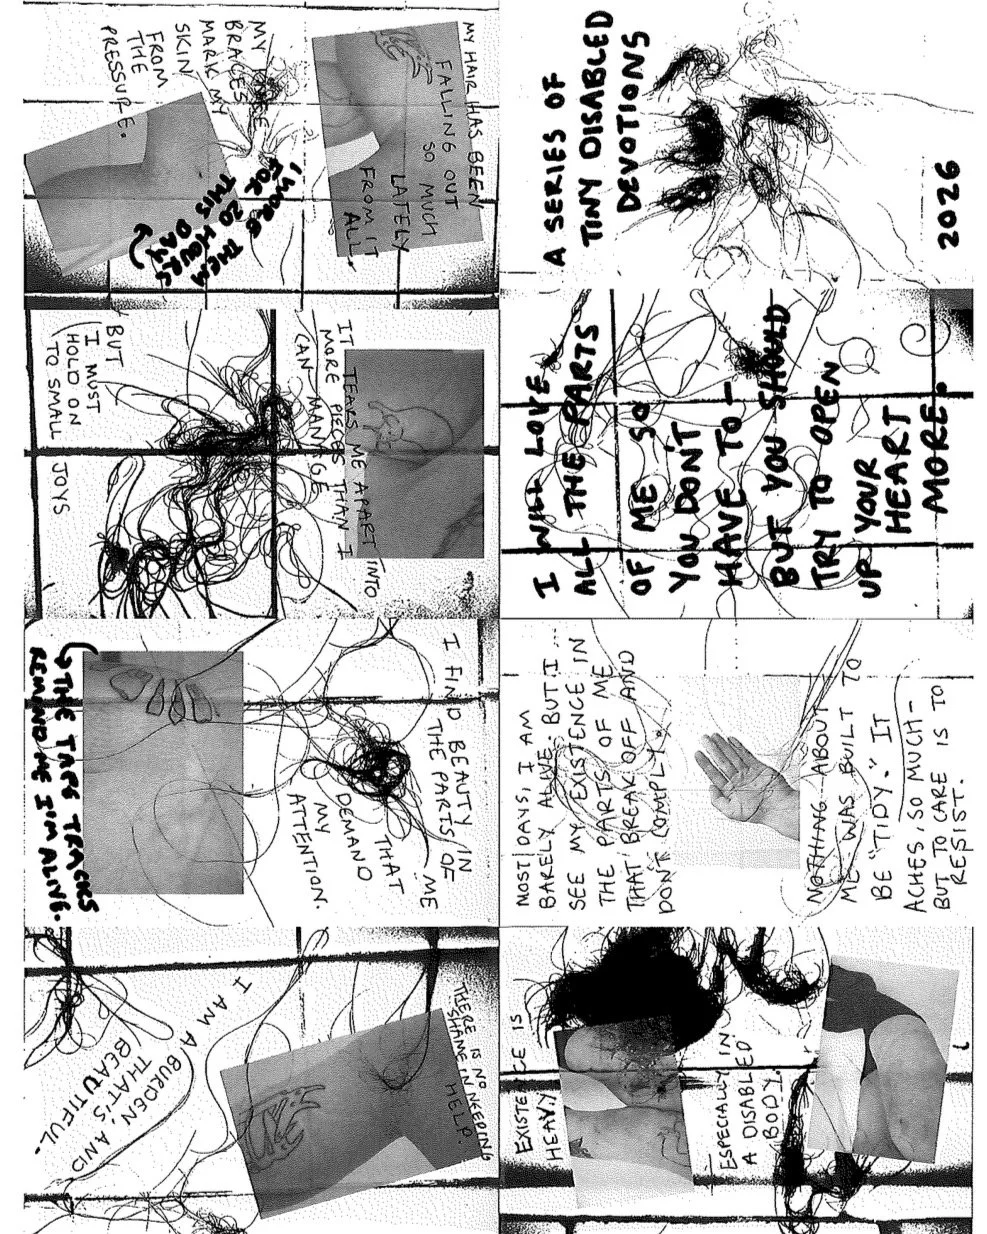 A SERIES OF
TINY DISABLED
DEVOTIONS
2026
MY HAIR HAS BEEN
FALLING OUT
SO MUCH
LATELY
FROM IT
ALL
MY KNEE
BRACES
MARK MY
SKIN
FROM
THE
PRESSURE.
I WORE THEM
FOR 20 HOURS
THIS DAY
IT TEARS ME APART INTO
MORE PIECES THAN I
CAN MANAGE
BUT
I MUST
HOLD ON
TO SMALL JOYS
I FIND
BEAUTY IN
THE PARTS OF
ME
THAT
DEMAND
MY
ATTENTION.
THE TAPE TRACKS
REMIND ME I'M ALIVE.
THERE IS NO
SHAME IN NEEDING
HELP.
I AM A BURDEN AND
THAT'S
BEAUTIFUL.
EXISTENCE IS
HEAVY
ESPECIALLY IN
A DISABLED
BODY.
MOST DAYS, I AM
BARELY ALIVE. BUT I...
SEE MY EXISTENCE IN
THE PARTS OF ME
THAT BREAK OFF AND
DON'T COMPLY.
NOTHING ABOUT
ME WAS BUILT TO
BE "TIDY." IT
ACHES, SO MUCH-
BUT TO CARE IS TO
RESIST.
I WILL LOVE
ALL THE PARTS
OF ME SO
YOU DON'T
HAVE TO-
BUT YOU SHOULD
TRY TO OPEN
UP YOUR
HEART
MORE.